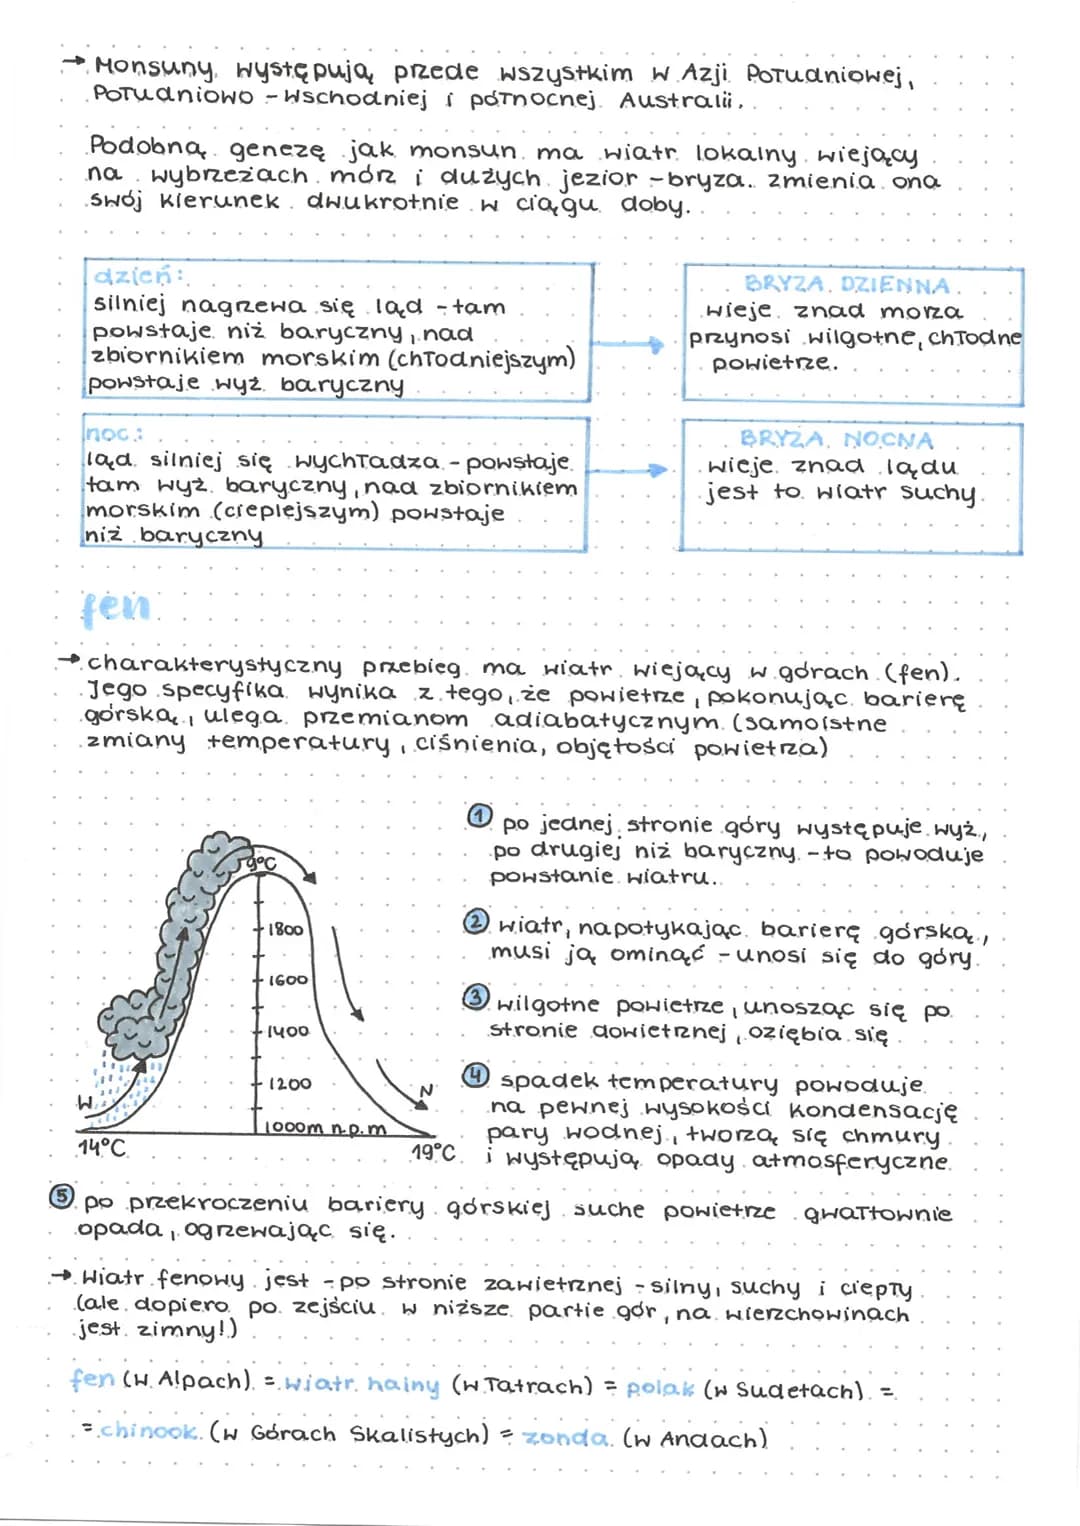 → Monsuny występują przede wszystkim w Azji Południowej,
Południowo-Wschodniej i północnej Australii.
Podobną genezę jak monsun ma wiatr lokalny wiejący
na wybrzeżach mórz i dużych jezior - bryza. zmienia ona
swój kierunek dwukrotnie w ciągu doby.
dzień:
silniej nagrzewa się ląd - tam
powstaje niż baryczny, nad
zbiornikiem morskim (chłodniejszym)
powstaje wyż baryczny
BRYZA DZIENNA
wieje znad morza
przynosi wilgotne, chłodne
powietrze.
noc:
ląd silniej się wychładza - powstaje
tam wyż baryczny, nad zbiornikiem
morskim (cieplejszym) powstaje
niż baryczny
BRYZA NOCNA
wieje znad lądu
jest to wiatr suchy
fen
→ charakterystyczny przebieg ma wiatr wiejący w górach (fen).
Jego specyfika wynika z tego, że powietrze, pokonując barierę
górską, ulega przemianom adiabatycznym (samoistne
zmiany temperatury, ciśnienia, objętości powietrza)
9°C
1800
1600
1400
1200
1000m n.p.m
W
N
14°C
19°C
1 po jednej stronie góry występuje wyż,
po drugiej niż baryczny - to powoduje
powstanie wiatru.
2 wiatr, napotykając barierę górską,
musi ją ominąć - unosi się do góry.
3 wilgotne powietrze, unosząc się po
stronie dowietrznej, oziębia się
4 spadek temperatury powoduje
na pewnej wysokości kondensację
pary wodnej, tworzą się chmury
i występują opady atmosferyczne.
5 po przekroczeniu bariery górskiej suche powietrze gwałtownie
opada, ogrzewając się.
→ Wiatr fenowy jest - po stronie zawietrznej - silny, suchy i ciepły
(ale dopiero po zejściu w niższe partie gór, na wierzchowinach
jest zimny!)
fen (w Alpach) = wiatr halny (w Tatrach) = polak (w Sudetach) =
= chinook (w Górach Skalistych) = zonda (w Andach)